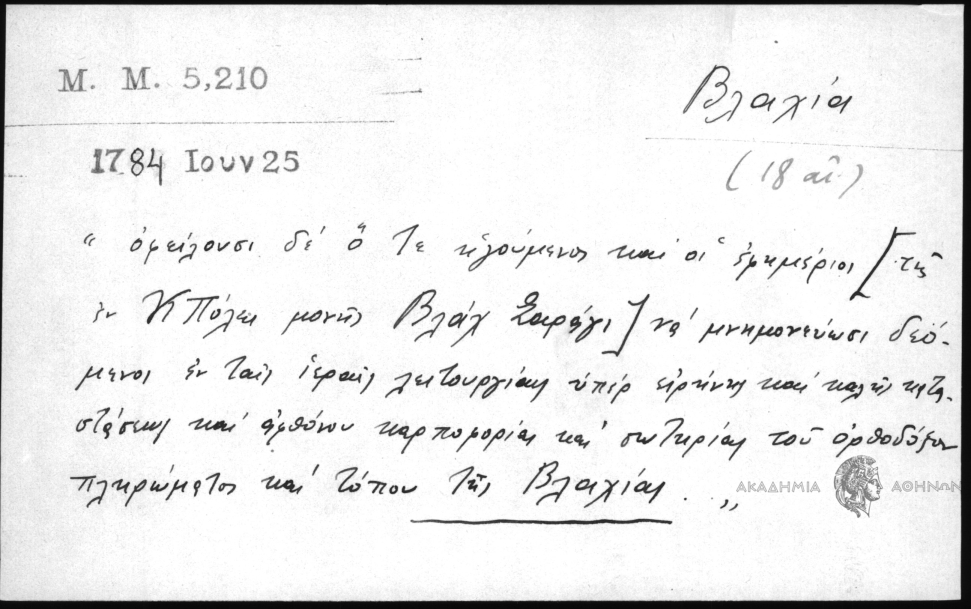 M. M. 5,210
Βλαχία
1784 Ιουν 25
(18 αἰ)
“ ὀφείλουσι δέ ὅ τε ἡγούμενος καὶ οἱ ἐφημέριοι [τῆς
ἐν Κπόλει μονῆς Βλάχ Σαράγι] νά μνημονεύωσι δεό-
μενοι ἐν ταῖς ἱεραῖς λειτουργίαις ὑπέρ εἰρήνης καί καλῆς κατα-
στάσεως καί ἀφθόνου καρποφορίας καί σωτηρίας τοῦ ὀρθοδόξου
πληρώματος καί τόπου τῆς Βλαχίας . „
ΑΚΑΔΗΜΙΑ ΑΘΗΝΩΝ